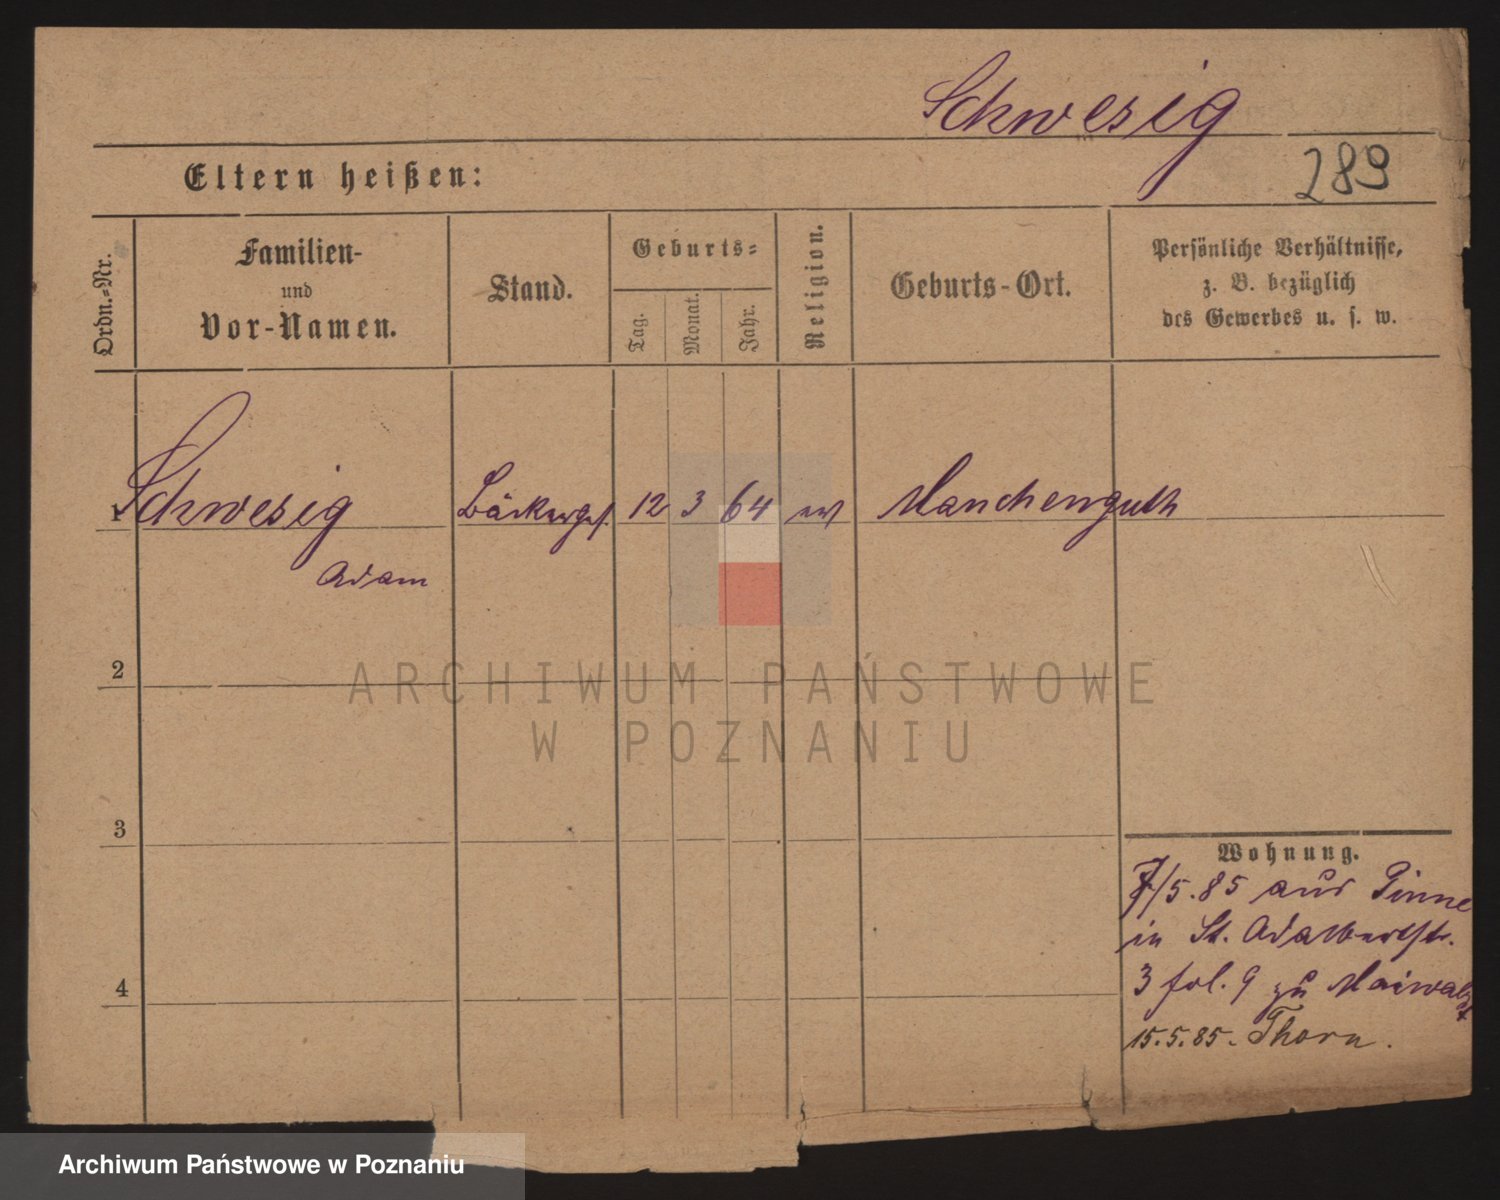 Schwesig
289
Eltern heißen:
Ordn.-Nr.
Familien-
und
Vor-Namen.
Stand.
Geburts-
Tag.
Monat.
Jahr.
Religion.
Geburts-Ort.
Persönliche Verhältnisse,
z. B. bezüglich
des Gewerbes u. s. w.
1 Schwesig Bäckerges. 12 3 64 ev Manchenguth
Adam
2
ARCHIWUM PAŃSTWOWE
W POZNANIU
3
Wohnung.
7/5.85 aus Pinne
in St. Adalbertstr.
3 fol. 9 zu Maiwald
4
15.5.85. Thorn.
Archiwum Państwowe w Poznaniu